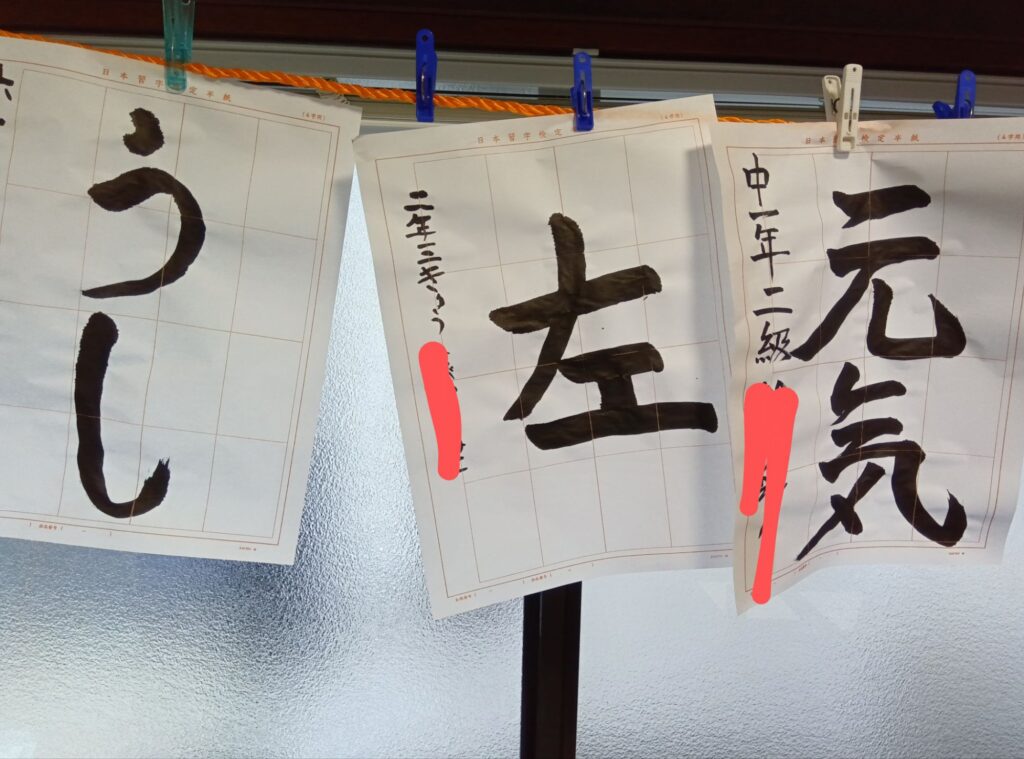 日本習字検定半紙
(4字用)
うし
日本習字検定
(4字用)
左
二年 二きゅう
日本 検定半紙
(4字用)
元気
中一年 二級